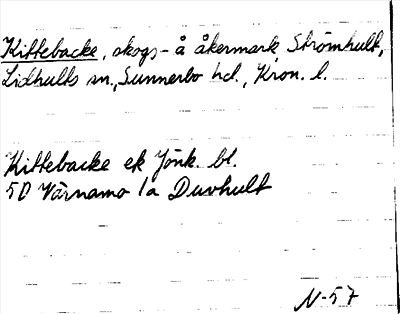 Kittebacke, skogs- å åkermark, Strömhult,
Lidhults sn., Sunnerbo hd., Kron. l.
Kittebacke ek Jönk. bl.
5D Värnamo 1a Duvhult
N-57